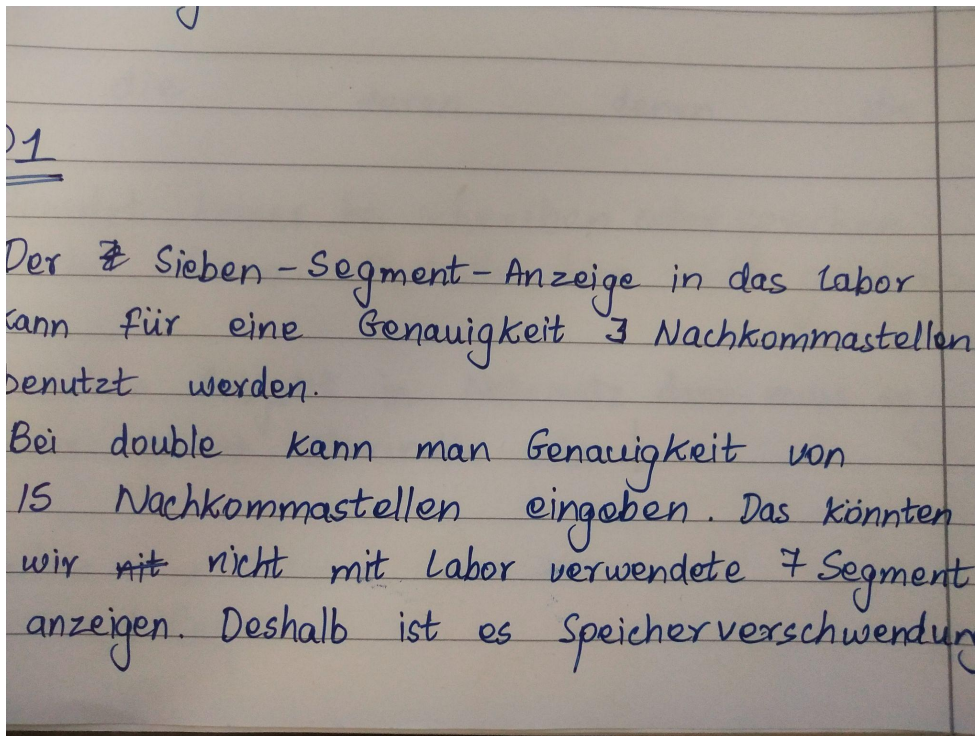 )1
Der Sieben-Segment-Anzeige in das Labor
kann für eine Genauigkeit 3 Nachkommastellen
benutzt werden.
Bei double kann man Genauigkeit von
15 Nachkommastellen eingeben. Das könnten
wir nit nicht mit Labor verwendete 7 Segment
anzeigen. Deshalb ist es Speicherverschwendung